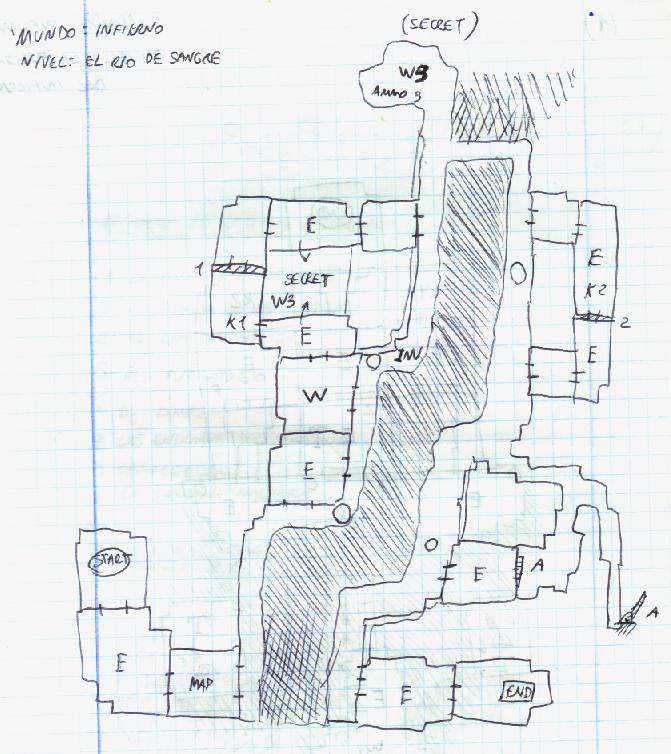 MUNDO: INFIERNO
NIVEL: EL RIO DE SANGRE
(SECRET)
W3
AMMO
E
E
1
SECRET
K2
W3
K1
2
E
INV
E
W
E
START
E
A
A
E
MAP
E
END